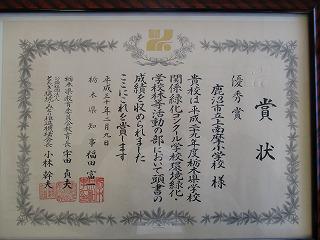 賞状
優秀賞
鹿沼市立上南摩小学校 様
貴校は平成二十九年度栃木県学校
関係緑化コンクール学校環境緑化
学校林等活動の部において頭書の
成績を収められました
ここにこれを賞します
平成三十年二月九日
栃木県知事 福田富一
栃木県教育委員会教育長 宇田貞夫
小林幹夫